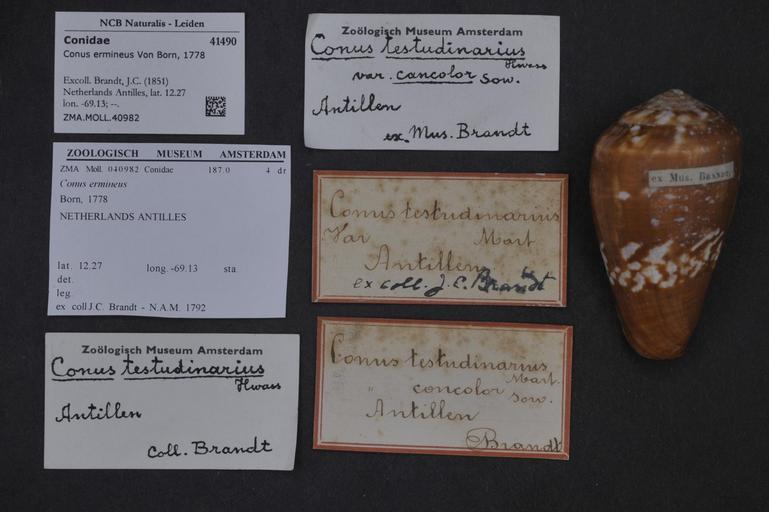 NCB Naturalis - Leiden
Conidae 41490
Conus ermineus Von Born, 1778
Excoll. Brandt, J.C. (1851)
Netherlands Antilles, lat. 12.27
lon. -69.13; --.
ZMA.MOLL.40982
ZOOLOGISCH MUSEUM AMSTERDAM
ZMA Moll. 040982 Conidae 187.0 4 dr
Conus ermineus
Born, 1778
NETHERLANDS ANTILLES
lat. 12.27 long. -69.13 sta.
det.
leg.
ex coll J.C. Brandt - N.A.M. 1792
Zoölogisch Museum Amsterdam
Conus testudinarius
Hwass
Antillen
Coll. Brandt
Zoölogisch Museum Amsterdam
Conus testudinarius
Hwass
var. cancolor Sow.
Antillen
ex. Mus. Brandt
Conus testudinarius
Var Mart
Antillen
ex coll. J. C. Brandt
Conus testudinarius
Mart.
" concolor Sow.
Antillen
Brandt
ex Mus. Brandt